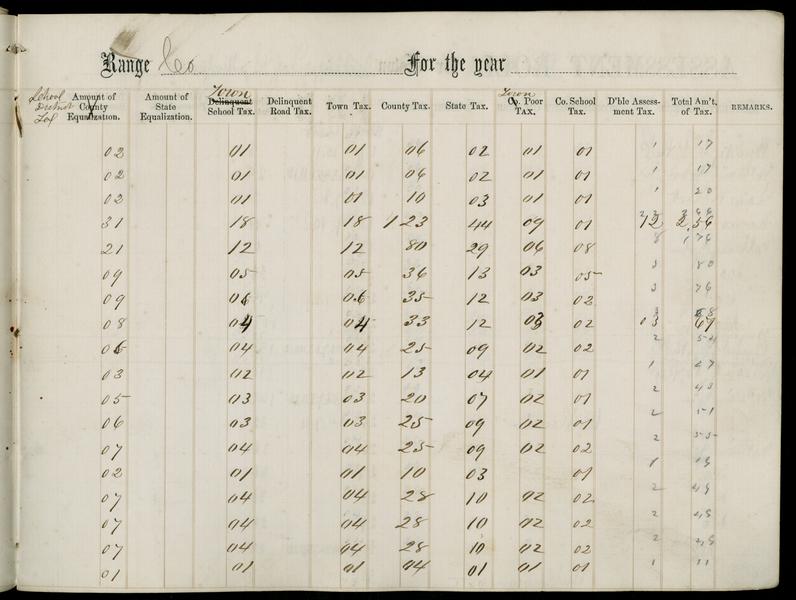 Range Co For the year
School District Tax
Amount of County Equalization. Amount of State Equalization. Town Delinquent School Tax. Delinquent Road Tax. Town Tax. County Tax. State Tax. Town Co. Poor TAX. Co. School Tax. D'ble Assess-ment Tax. Total Am't. of Tax. REMARKS.
02 01 01 06 02 01 01 1 17
02 01 01 06 02 01 01 1 17
02 01 01 10 03 01 01 1 20
31 18 18 1 23 44 09 01 12 2,56
21 12 12 80 29 06 08 8 1 76
09 05 05 36 13 03 05 3 80
09 06 06 35 12 03 02 3 76
08 04 04 33 12 03 02 03 67
06 04 04 25 09 02 02 2 54
03 02 02 13 04 01 01 1 27
05 03 03 20 07 02 01 2 43
06 03 03 25 09 02 01 2 51
07 04 04 25 09 02 02 2 55
02 01 01 10 03 01
07 04 04 28 10 02 02 2 49
07 04 04 28 10 02 02 2 48
07 04 04 28 10 02 02 2 48
01 01 01 04 01 01 01 1 11